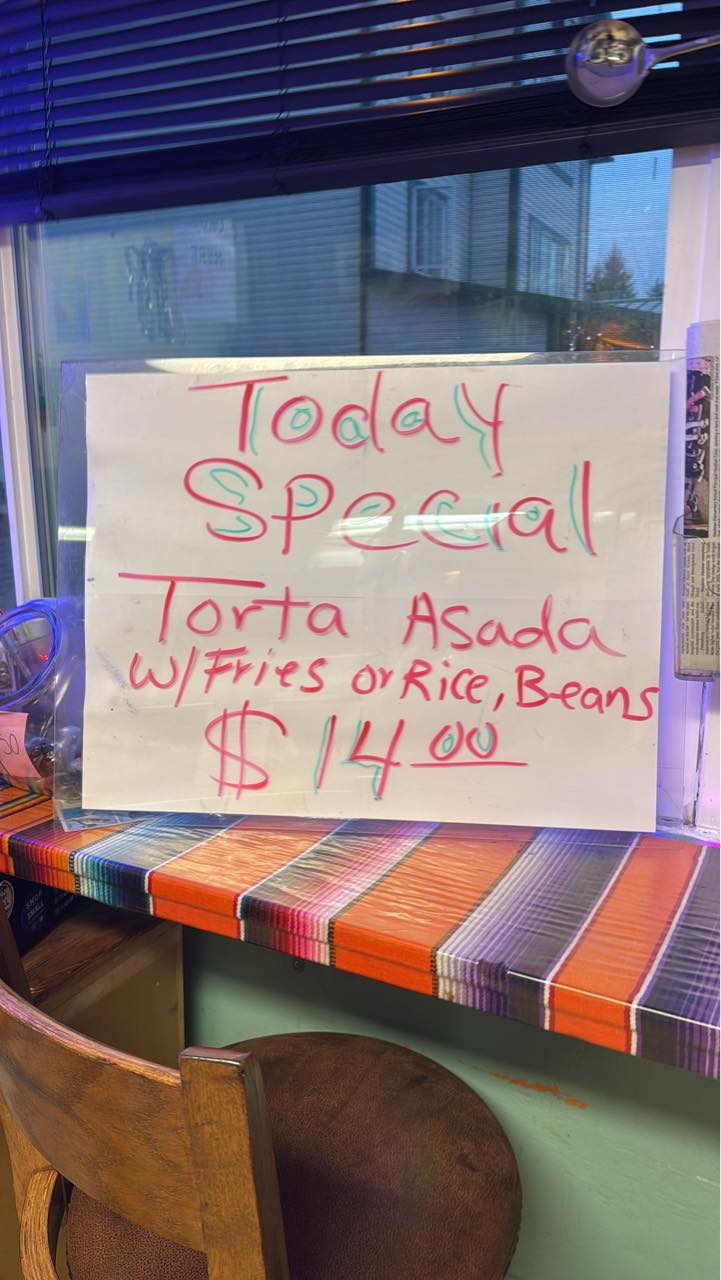 Today
Special
Torta Asada
w/Fries or Rice, Beans
$ 14 00
SHOP
SMALL